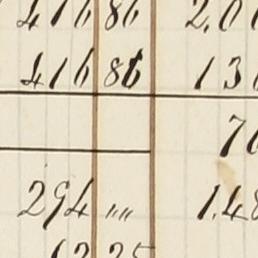 416 86 2,0
416 86 13
7
294 „„ 1,48